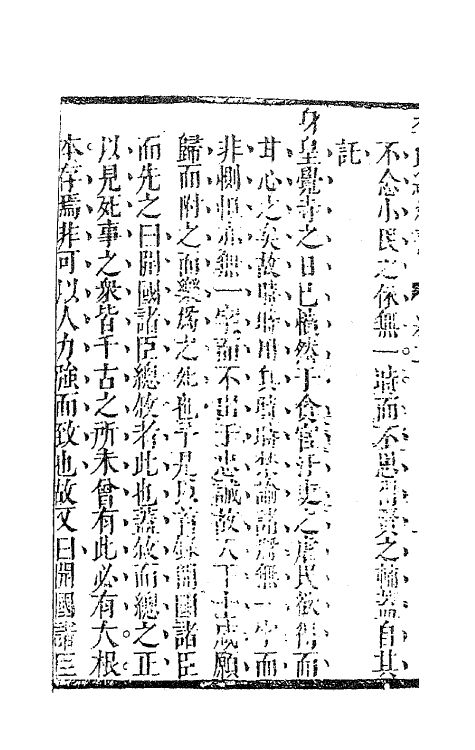 不念小民之依無一時而不思
之輸蓋自其
託
身皇覺寺之日已憤然于貪官汙吏之虐民欲得而
甘心之矣故時時用兵時時禁諭諸將無一字而
非惻怛亦無一字而不出于忠誠故人下士咸願
歸而附之而樂爲之死也于是
開國諸臣
而先之曰開國諸臣總敘者此也蓋敘而總之正
以見死事之衆皆千古之所未曾有此必有大根
本存焉非可以人力強而致也故又曰開國諸臣